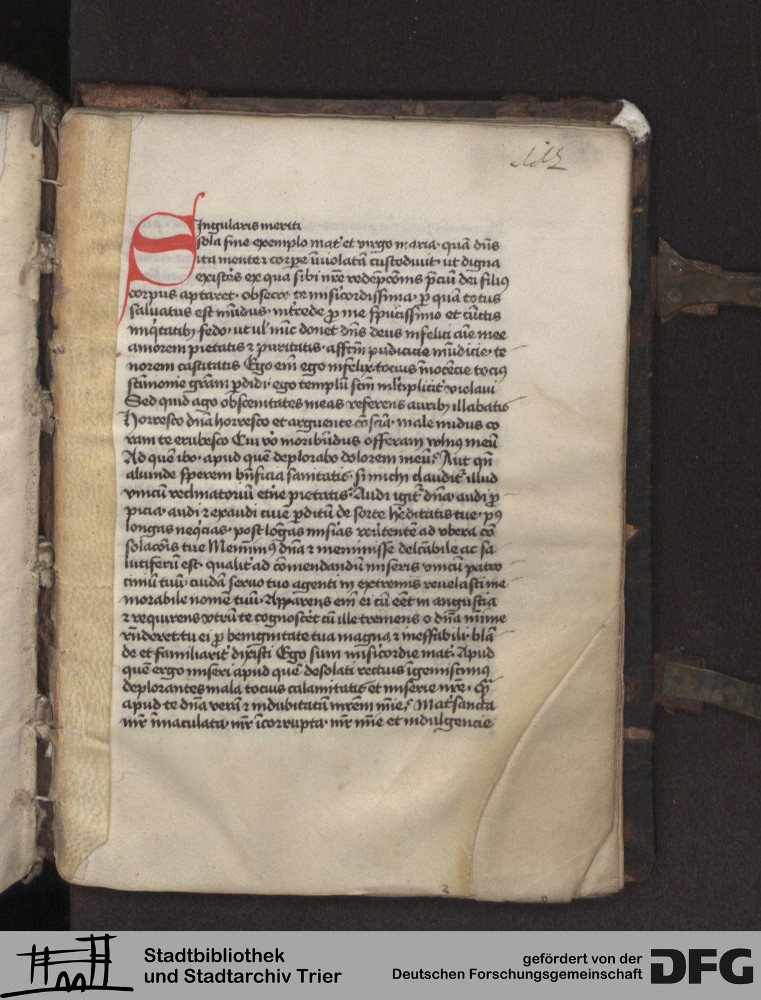 Singularis meriti
sola sine exemplo mat' et virgo maria quā dn̄s
ita mente ⁊ corpe īviolatā custodivit ut digna
existeres ex qua sibi nr̄e redēpcōnis p̄ciū dei filiꝰ
corpus aptaret obsecro te misīcordissima p quā totus
salvatus est mūdus int'cede p me spurcissimo et cūctis
iniq̇tatibꝫ fedo ut ul' nūc donet dn̄s deus infelici aīe mee
amorem pietatis ⁊ puritatis affctm̄ pudicicie mūdicie te
norem castitatis Ego em̄ ego infelix tocius īnocēcie tociꝰ
sctimonie grām pdidi ego templū scm̄ mltiplicit' violavi
Sed quid ago obscenitates meas referens auribꝫ illabatis
Horresco dn̄a horresco et arguente cōsciā male nudus co
ram te erubesco Cui vo moribūdus offeram vulnꝰ meū
Ad quē ibo apud quē deplorabo dolorem meū Aut qn̄
aliunde sperem bn̄ficia sanitatis si michi claudit' illud
unicū reclinatoriū et'ne pietatis Audi igit' dn̄a audi p
picia audi ⁊ exaudi civē pditū de sorte h'editatis tue pꝰ
longas neq̇cias post lōgas mīsias rev'tentē ad ubera cō
solacōis tue Meminimꝰ dn̄a ⁊ meminisse delc̄abile ac sa
lutiferū est qualit' ad cōmendandū miseris unicū patro
ciniū tuū cuidā servo tuo agenti in extremis revelasti me
morabile nomē tuū Apparens em̄ ei cū eēt in angustia
⁊ requirens utrū te cognoscēt cū ille tremens o dn̄a mīme
rn̄deret tu ei p benignitate tua magna ⁊ ineffabili blā
de et familiarit' dixisti Ego sum misīcordie mat' Apud
quē ergo miseri apud quē desolati rectius īgemiscimꝰ
deplorantes mala tocius calamitatis et miserie nr̄e qm̄
apud te dn̄a verā ⁊ indubitatā mr̄em mīe Mat' sancta
mr̄ īmaculata mr̄ īcorrupta mr̄ mīe et indulgencie
3
Stadtbibliothek
und Stadtarchiv Trier
gefördert von der
Deutschen Forschungsgemeinschaft
DFG